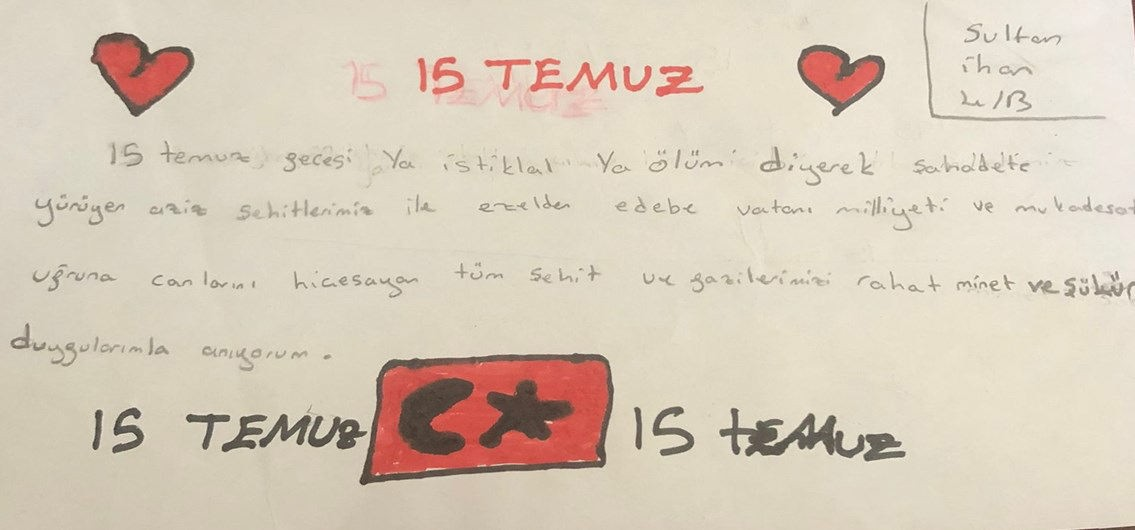 15 TEMUZ
Sultan
ihan
4/B
15 temuz gecesi Ya istiklal Ya ölüm diyerek sahadete
yürüyen aziz sehitlerimiz ile ezelden edebe vatanı milliyeti ve mukadesat
uğruna canlarını hicesayan tüm şehit ve gazilerimizi rahat minet ve şükür
duygularımla anıyorum.
15 TEMUZ 15 tEMUZ